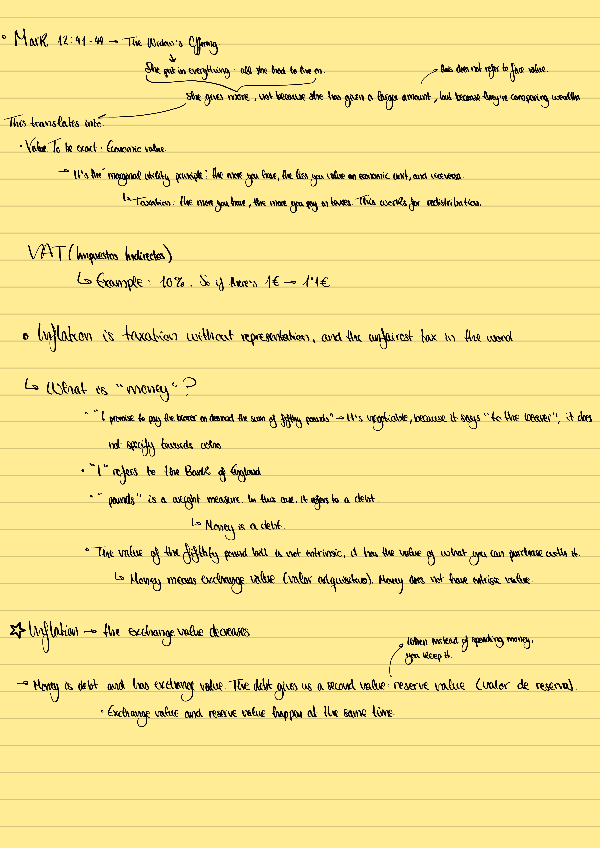 • Mark 12:41-44 → The Widow's Offering
↓
She put in everything - all she had to live on.
→ this does not refer to face value.
She gives more, not because she has given a larger amount, but because they're comparing wealths
This translates into:
• Value. To be exact: Economic value.
→ It's the marginal utility principle: the more you have, the less you value an economic unit, and viceversa.
↳ Taxation: the more you have, the more you pay in taxes. This works for redistribution.
VAT (Impuestos Indirectos)
↳ Example: 10%. So if there's 1€ → 1'1€
• Inflation is taxation without representation, and the unfairest tax in the word
↳ What is "money"?
• "I promise to pay the bearer on demand the sum of fifthty pounds" → It's negotiable, because it says "to the bearer", it does
not specify towards who
• "I" refers to the Bank of England
• "pounds" is a weight measure. In this case, it refers to a debt.
↳ Money is a debt.
• The value of the fifthty pound bill is not extrinsic, it has the value of what you can purchase with it.
↳ Money means exchange value (valor adquisitivo). Money does not have intrisic value.
☆ Inflation → the exchange value decreases
When instead of spending money,
you keep it.
→ Money is debt and has exchange value. The debt gives us a second value: reserve value (valor de reserva).
• Exchange value and reserve value happen at the same time.